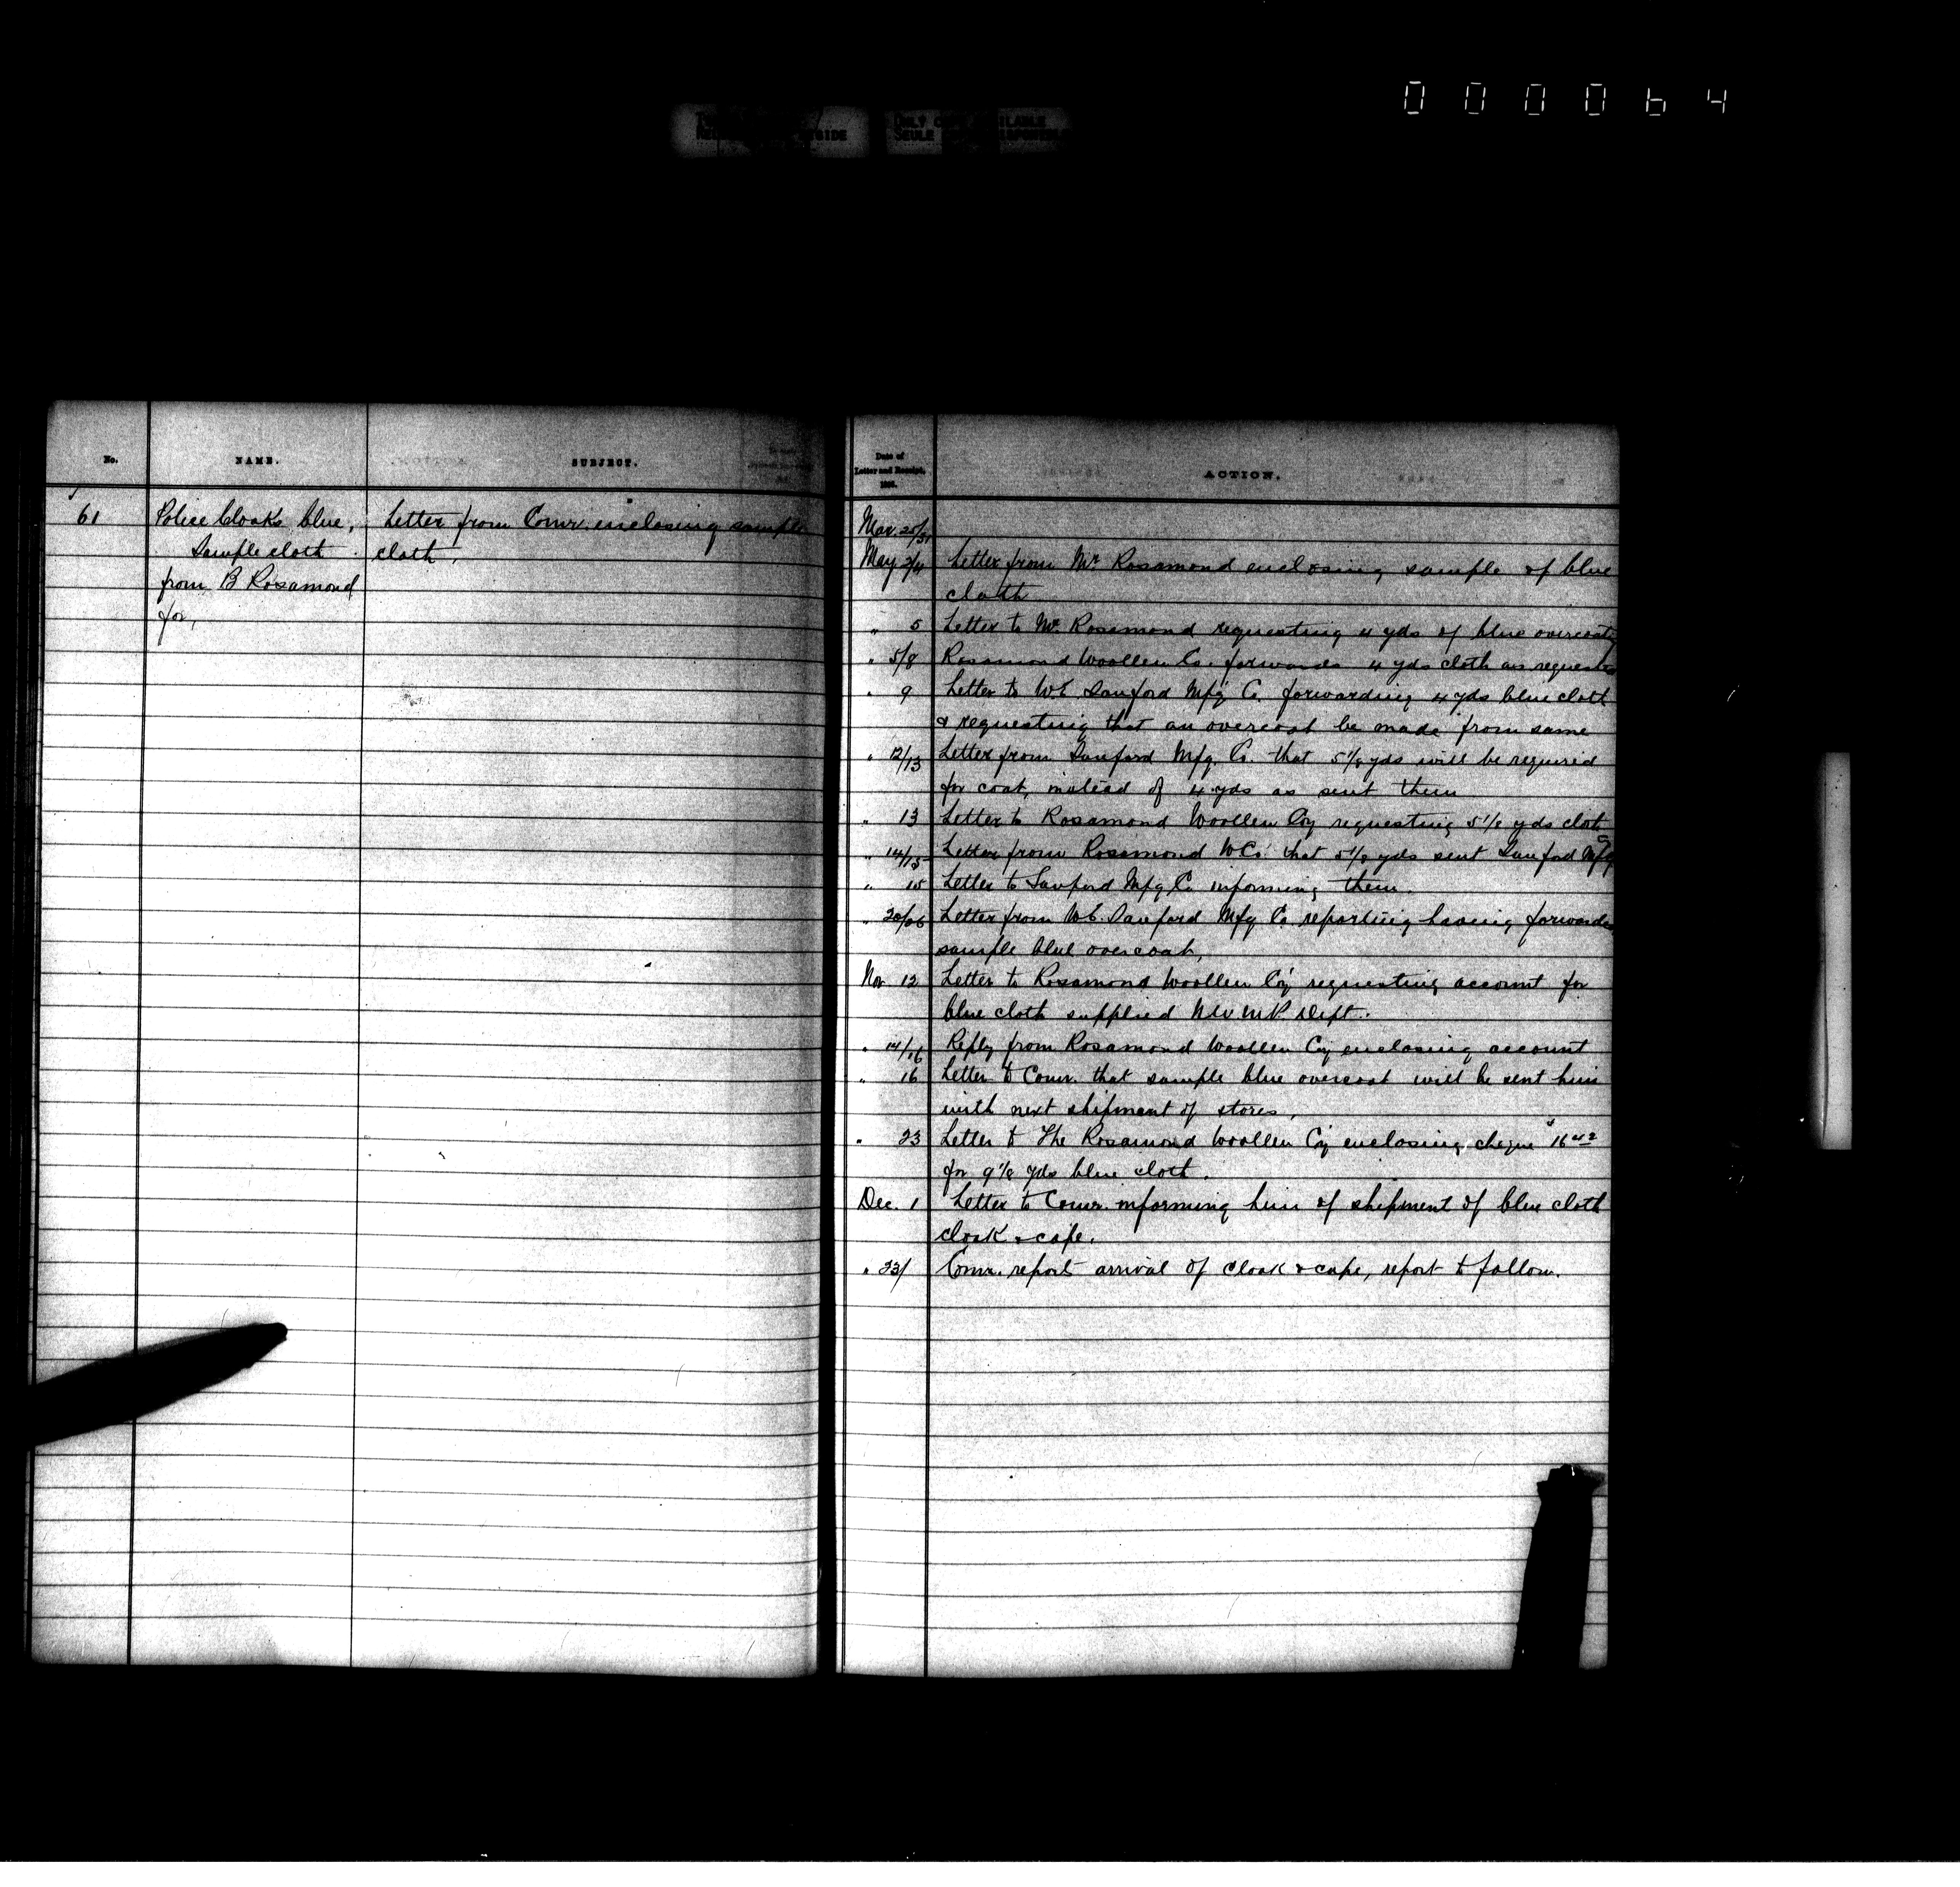 000064
ONLY COPY AVAILABLE
SEULE
No.
NAME.
SUBJECT.
61
Police Cloaks blue,
Sample cloth
from B Rosamond
for,
Letter from Comr. enclosing sample
cloth,
Date of
Letter and Receipt,
ACTION.
Mar. 25/31
May 2/4 Letter from Mr Rosamond enclosing sample of blue
cloth
" 5 Letter to Mr. Rosamond requesting 4 yds of blue overcoatg
" 5/8 Rosamond Woollen Co. forwards 4 yds cloth as requested
" 9 Letter to W.E. Sanford Mfg Co. forwarding 4 yds blue cloth
& requesting that an overcoat be made from same
" 12/13 Letter from Sanford Mfg. Co. that 5 1/8 yds will be required
for coat, instead of 4 yds as sent them
" 13 Letter to Rosamond Woollen Coy requesting 5 1/8 yds cloth
" 14/15 Letter from Rosamond W Co. that 5 1/8 yds sent Sanford Mfg Co
" 15 Letter to Sanford Mfg Co informing them.
" 20/26 Letter from W.E. Sanford Mfg Co. reporting having forwarded
sample blue overcoat,
Nov 12 Letter to Rosamond Woollen Coy requesting account for
blue cloth supplied N W M P. Dept.
" 14/16 Reply from Rosamond Woollen Coy enclosing account
" 16 Letter to Comr. that sample blue overcoat will be sent him
with next shipment of stores,
" 23 Letter to The Rosamond Woollen Coy enclosing cheque $16 42
for 9 1/8 yds blue cloth.
Dec. 1 Letter to Comr. informing him of shipment of blue cloth
cloak & cape.
" 23/ Comr. reports arrival of cloak & cape, report to follow.